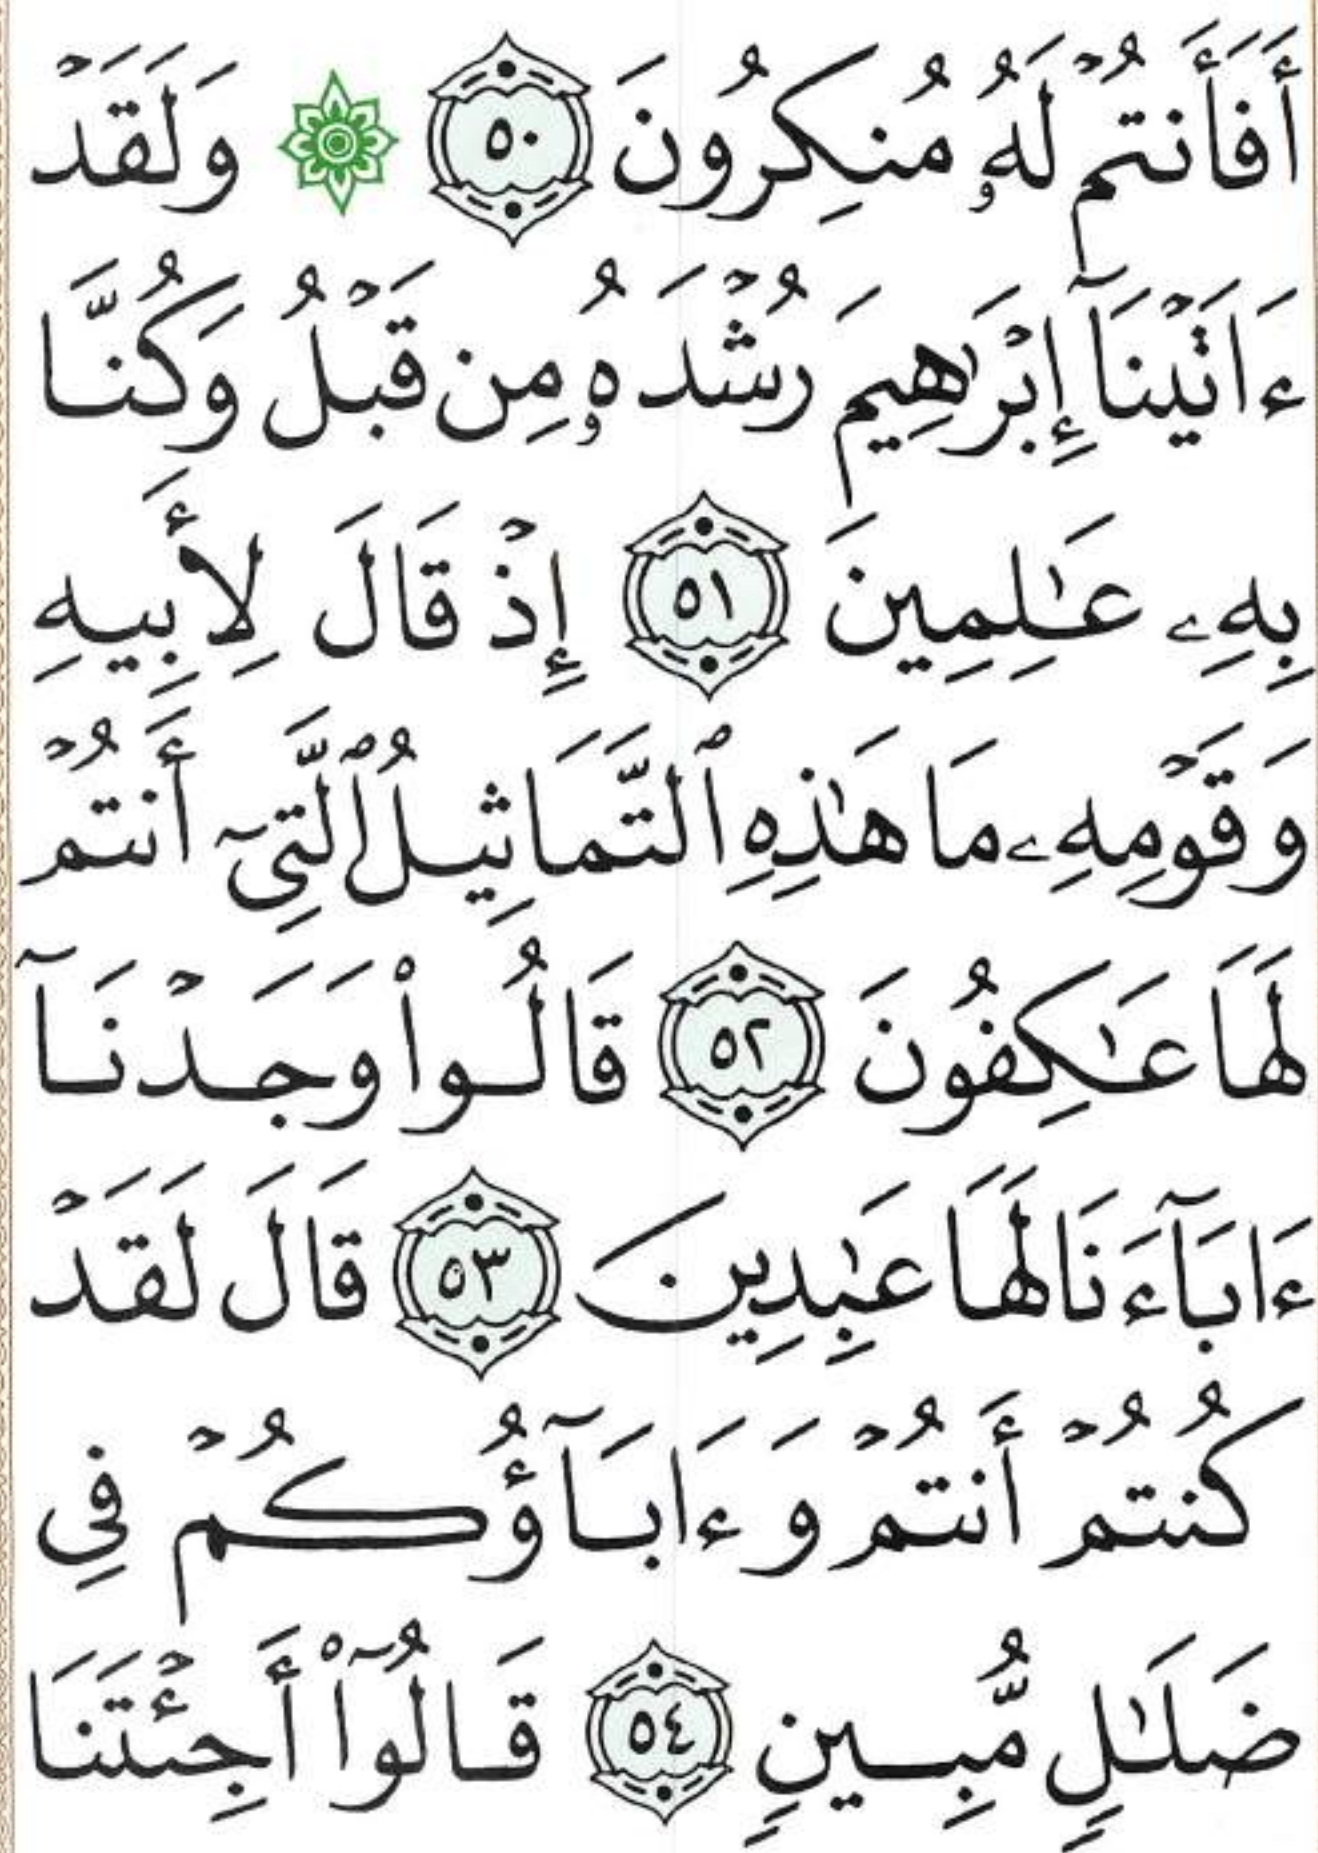 أَفَأَنتُمْ لَهُۥ مُنكِرُونَ ٥٠ ۞ وَلَقَدْ
ءَاتَيْنَآ إِبْرَٰهِيمَ رُشْدَهُۥ مِن قَبْلُ وَكُنَّا
بِهِۦ عَٰلِمِينَ ٥١ إِذْ قَالَ لِأَبِيهِ
وَقَوْمِهِۦ مَا هَٰذِهِ ٱلتَّمَاثِيلُ ٱلَّتِىٓ أَنتُمْ
لَهَا عَٰكِفُونَ ٥٢ قَالُوا۟ وَجَدْنَآ
ءَابَآءَنَا لَهَا عَٰبِدِينَ ٥٣ قَالَ لَقَدْ
كُنتُمْ أَنتُمْ وَءَابَآؤُكُمْ فِى
ضَلَٰلٍ مُّبِينٍ ٥٤ قَالُوٓا۟ أَجِئْتَنَا